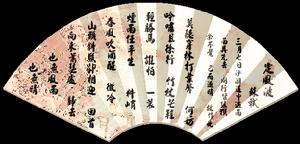 定風波
蘇軾
三月七日沙湖道中遇雨
雨具先去同行皆狼狽
余不覺已而遂晴故作此
莫聽穿林打葉聲 何妨
吟嘯且徐行 竹杖芒鞋
輕勝馬 誰怕 一蓑
煙雨任平生 料峭
春風吹酒醒 微冷
山頭斜照卻相迎 回首
向來蕭瑟處 歸去
也無風雨
也無晴